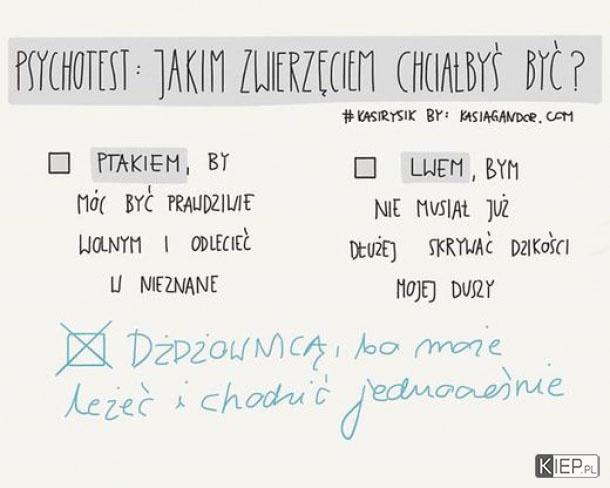 PSYCHOTEST: JAKIM ZWIERZĘCIEM CHCIAŁBYŚ BYĆ?
#KASIRYSIK BY: KASIAGANDOR.COM
PTAKIEM, BY
MÓC BYĆ PRAWDZIWIE
WOLNYM I ODLECIEĆ
W NIEZNANE
LWEM, BYM
NIE MUSIAŁ JUŻ
DŁUŻEJ SKRYWAĆ DZIKOŚCI
MOJEJ DUSZY
DŻDŻOWNICĄ, bo może
leżeć i chodzić jednocześnie
KIEP.PL